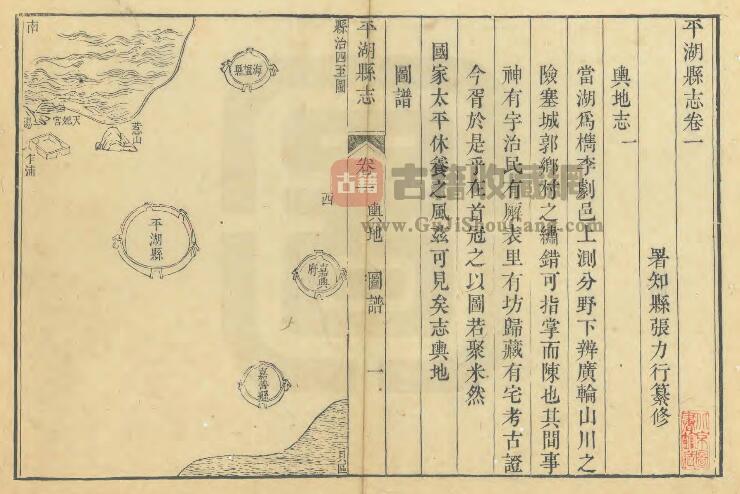 平湖縣志卷一
署知縣張力行纂修
輿地志一
當湖爲檇李劇邑上測分野下辨廣輪山川之
險塞城郭鄉村之繡錯可指掌而陳也其間事
神有宇治民有廨表里有坊歸藏有宅考古證
今胥於是乎在首冠之以圖若聚米然
國家太平休養之風玆可見矣志輿地
圖譜
平湖縣志
卷一
輿地
圖譜
一
縣治四至圖
南
海鹽縣
天妃宮
乍浦
平湖縣
西
嘉興府
嘉善縣
古籍
古籍收藏網
www.GuJiShouCang.com